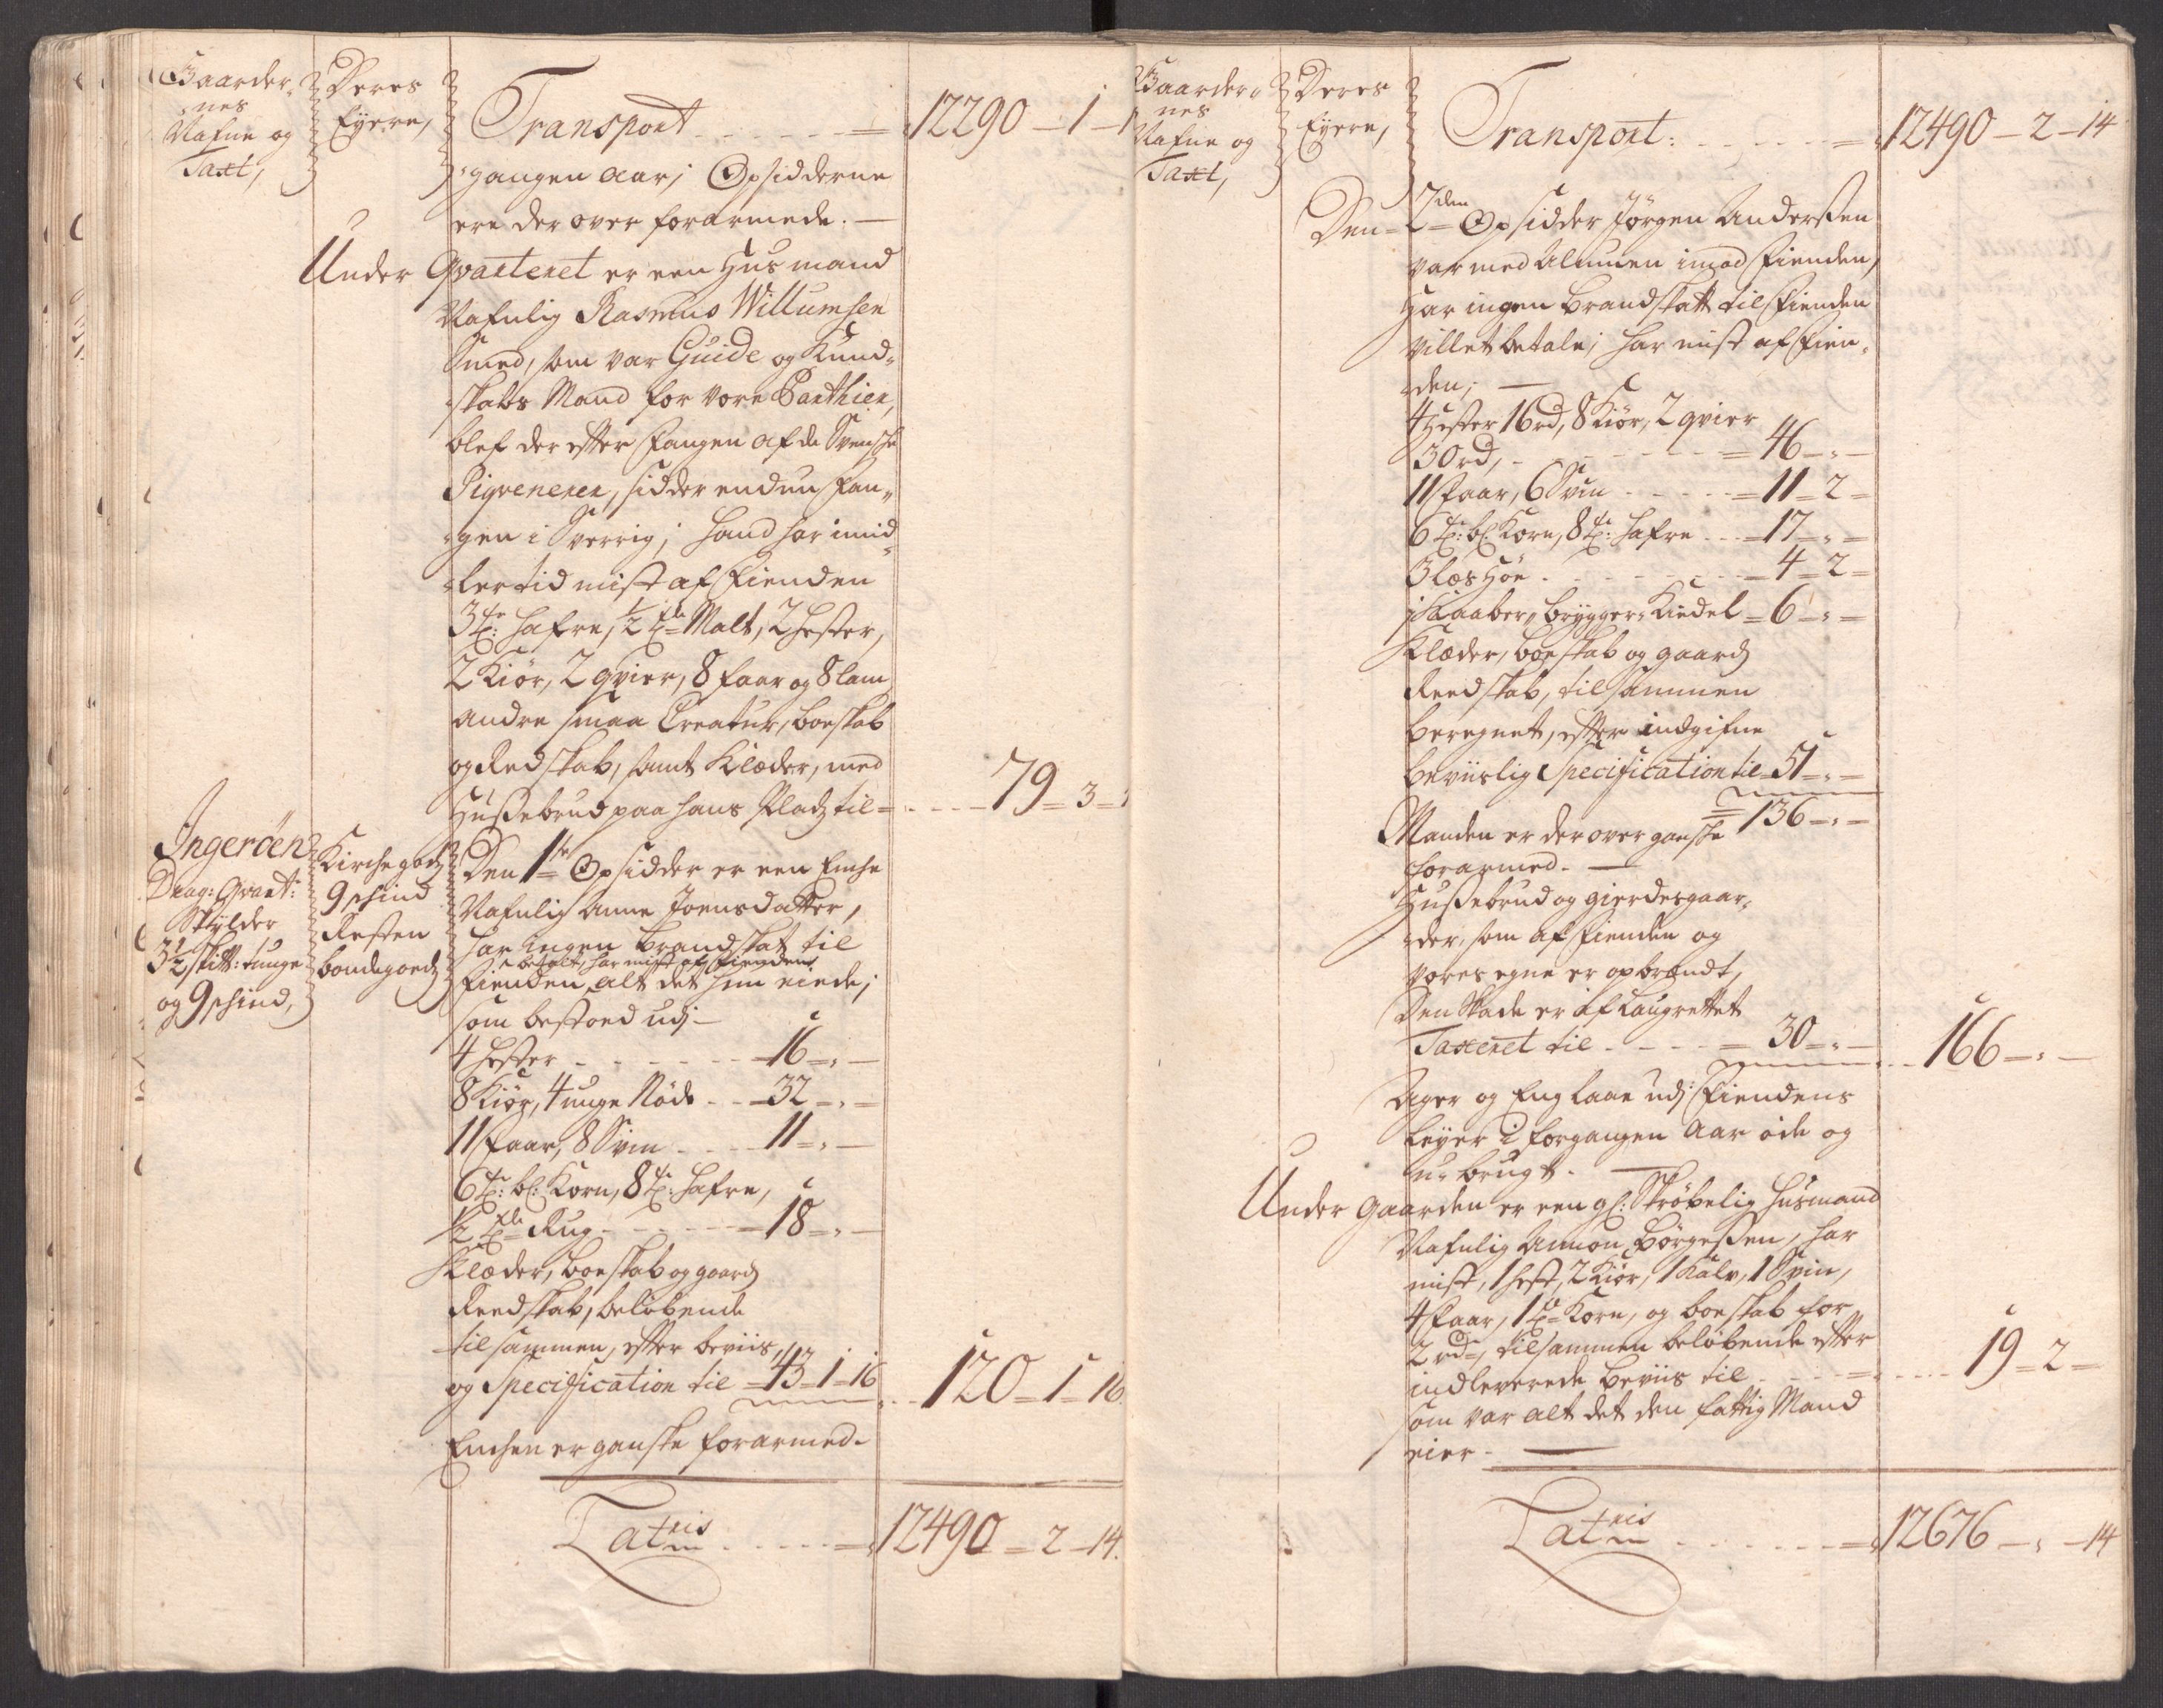 Gaarder-
nes
Nafne og
Taxt,
Deres
Eyere,
Transport = 12290 - 1 -
gangen aar; Opsidderne
ere der over forarmede. —
Under Qvarteret er een Huusmand
Nafnlig Rasmus Willumsen
Smed, som var Guide og Kund-
skabs Mand for vore Parthier,
blef der efter fangen af de Svensche
Piqvenerer, sidder endnu fan-
gen i Sverrig; hand har imid-
lertid mist af Fienden
3 tr: Hafre, 1/2 tde Malt, 2 Hester,
2 Kiør, 2 qvier, 8 faar og 8 lam
andre smaa Creatur, boeskab
og Redskab, samt Klæder, med
Hussebrud paa hans Pladz til = 79 = 3 =
Ingeröen
Drag: Qvart:
Skylder
3 1/2 skitt: tunge
og 9 schind,
Kirchegodz
9 schind
Resten
bondegoedz
Den 1ste Opsidder er een Enche
Nafnlig Anne Joensdatter,
har ingen brandskat til
betalt, har mist af Fienden
Fienden alt det hun eiede;
som bestoed udj —
4 Hester = 16 = " —
8 Kiør, 4 unge Nöde = 32 = " =
11 Faar, 8 Sviin 11 = " —
6 tr: bl: Korn, 8 tr: Hafre,
1/2 tde Rug = 18 = " —
Klæder, boeskab og gaardz
Reedskab, beløbende
tilsammen, efter beviis,
og Specification til = 43 = 1 = 16 120 = 1 = 16.
Enchen er ganske forarmed.
Latris = 12490 = 2 = 14.
Gaarder-
nes
Nafne og
Taxt,
Deres
Eyere,
Transport: = 12490 - 2 - 14
Den 2den Opsidder Jörgen Anderssen
var med Almuen imod Fienden,
Har ingen brandskatt til Fienden
villet betale; har mist af Fien-
den; —
4 Hester 16 rd, 8 Kiör, 2 qvier
30 rd, = 46 = " —
11 Faar, 6 Sviin = 11 = 2 =
6 tr: bl: Korn, 8 tr: Hafre = 17 = " =
3 læs Höe = 4 = 2 =
1 Kaaber brygger Kiedel = 6 = " =
Klæder, boeskab og gaardz
Reedskab, tilsammen
beregnet, efter indgifne
beviislig Specification til = 51 = " —
= 136 = " —
Manden er der over ganske
forarmed. —
Hussebrud og gierdesgaar-
der, som af Fienden og
vores egne er opbrændt,
den Skade er af Laugrettet
Taxeret til = 30 = " — 166 = " —
Ager og Eng laae udj Fiendens
leyer i forgangen Aar öde og
u-brugt. —
Under gaarden er een gl: Skröbelig Husmand
Nafnlig Amon Börgessen, har
mist, 1 Hest, 2 Kiör, 1 Kalv, 1 Sviin,
4 Faar, 1 td Korn, og boeskab for
2 rd, tilsammen beløbende efter
indleverede beviis til = 19 = 2 =
som var alt det den fattig Mand
eier. —
Latris = 12676 - " - 14